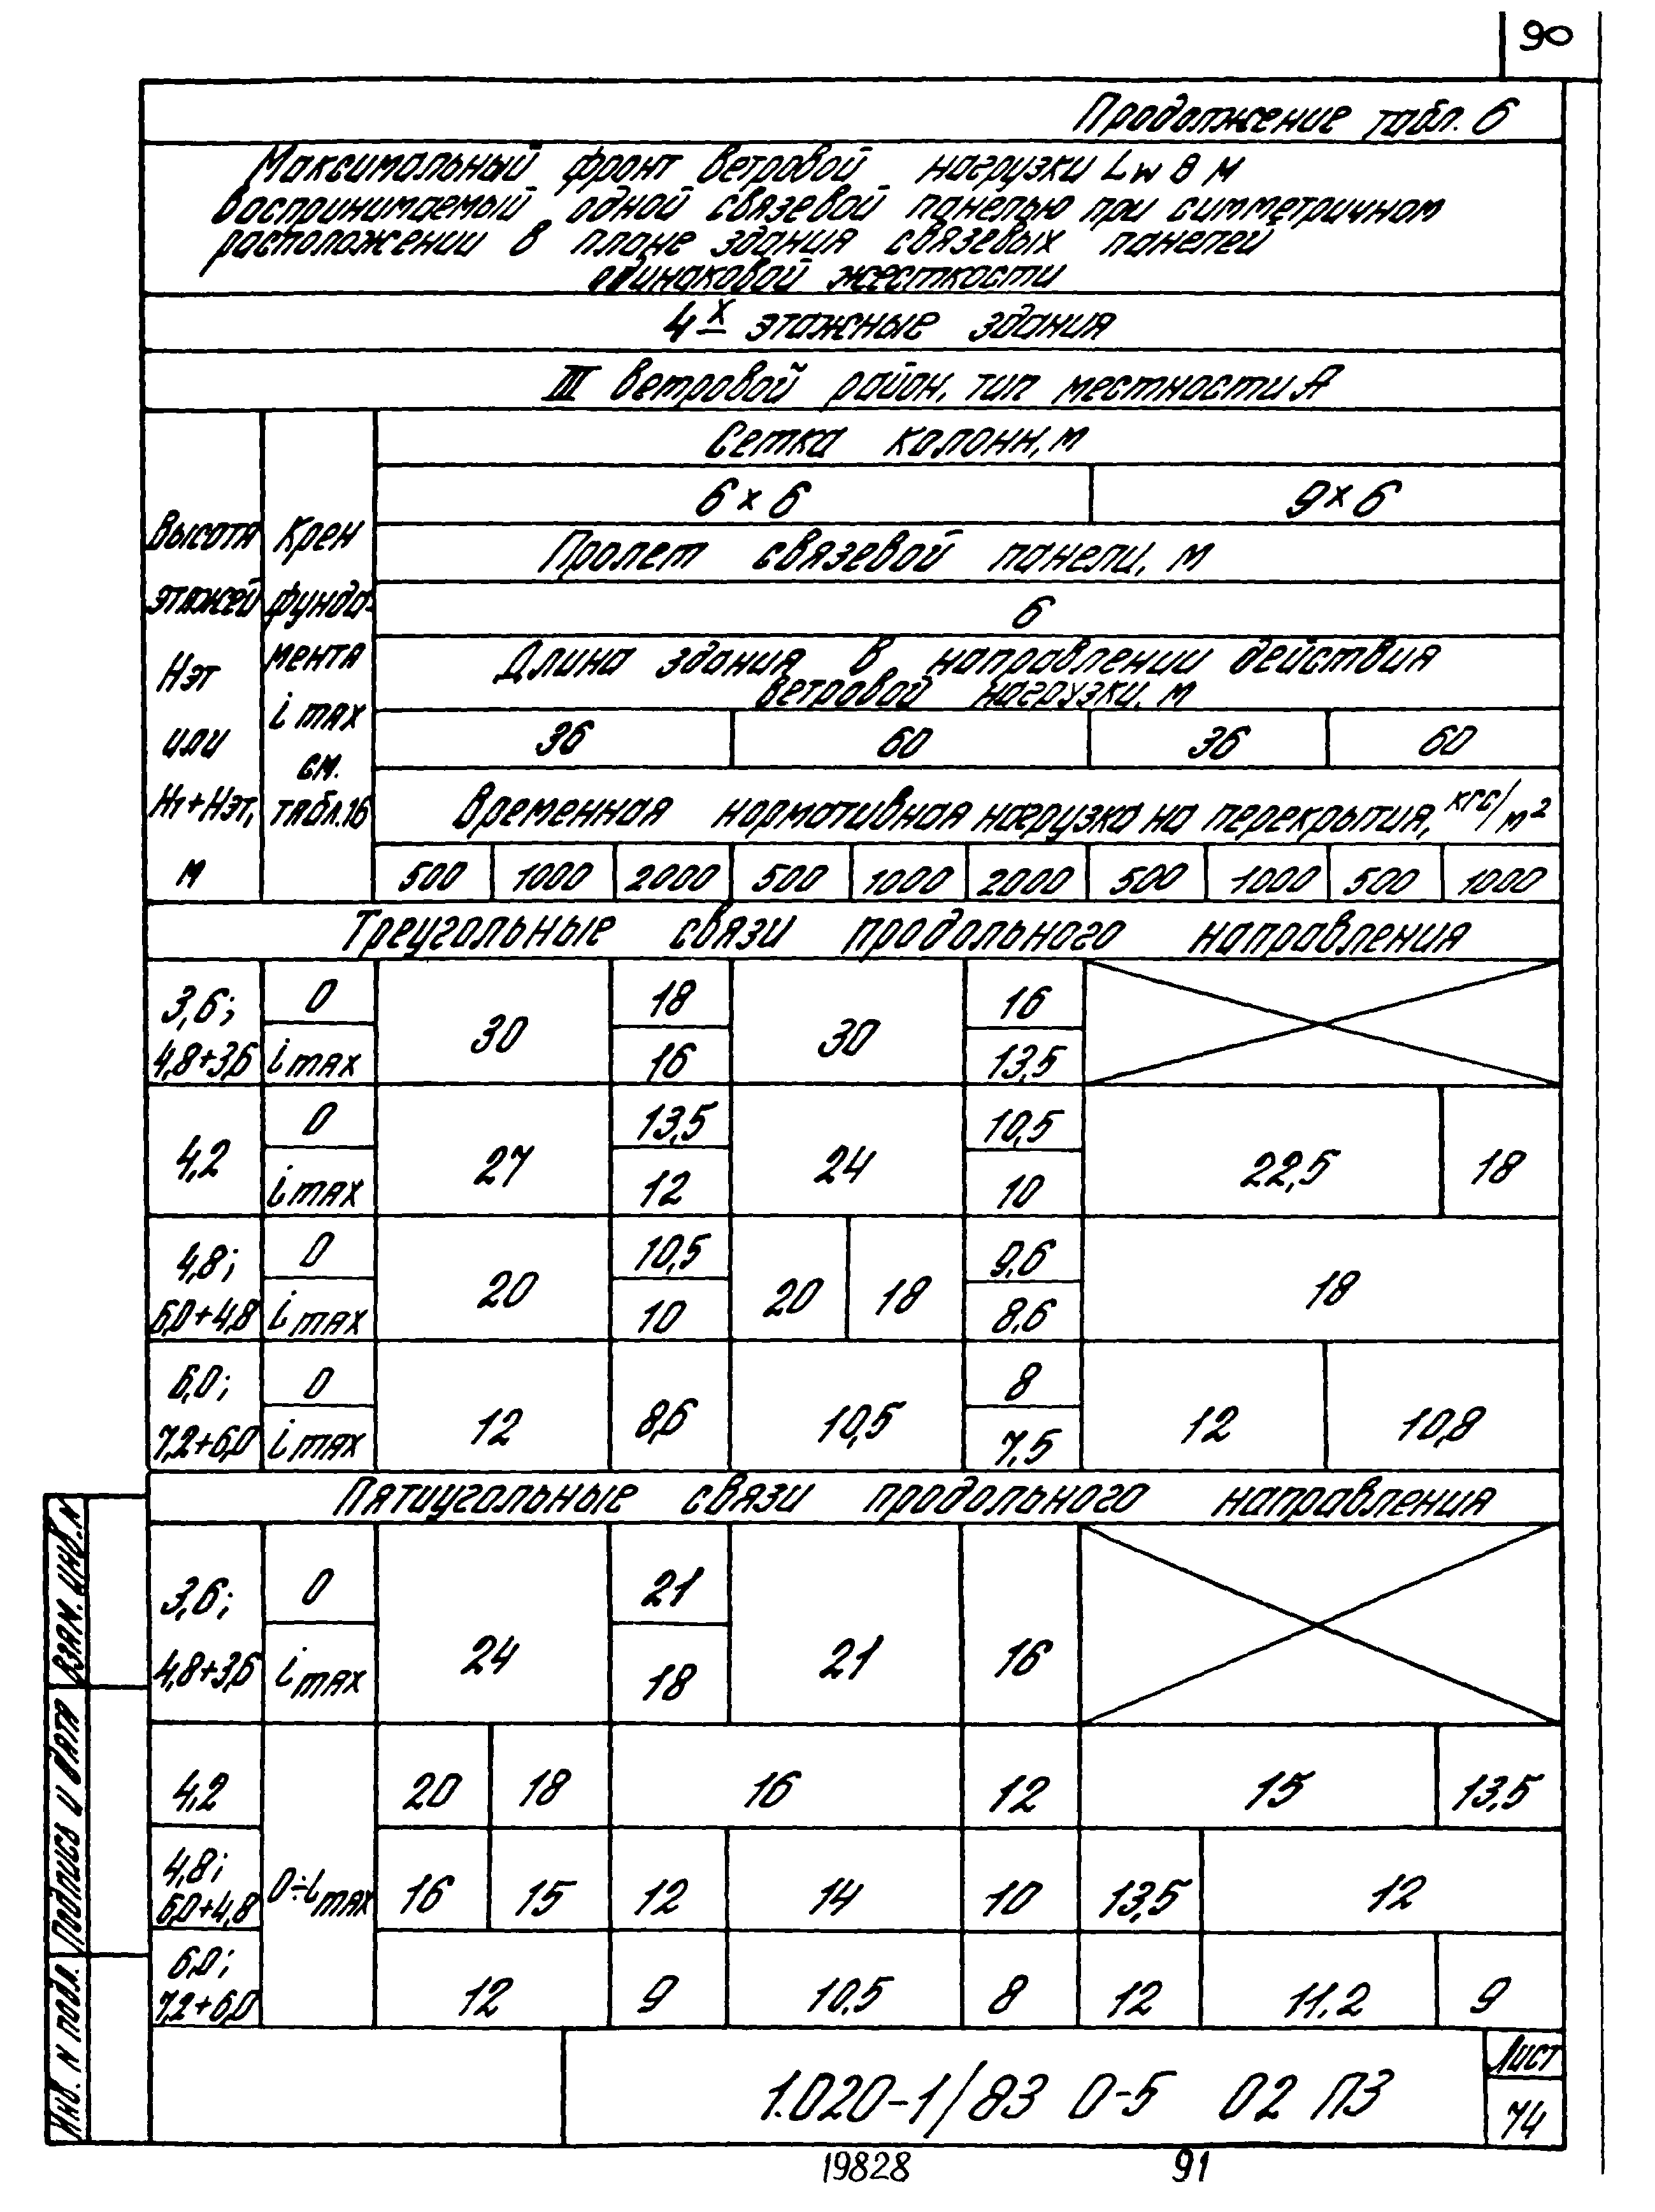 90
Продолжение табл. 6
Максимальный фронт ветровой нагрузки Lw в м
воспринимаемый одной связевой панелью при симметричном
расположении в плане здания связевых панелей
одинаковой жесткости
4х этажные здания
III ветровой район, тип местности А
Высота
этажей
Нэт
или
Н1+Нэт,
м
Крен
фунда-
мента
i max
см.
табл.16
Сетка колонн, м
6×6 9×6
Пролет связевой панели, м
6
Длина здания в направлении действия
ветровой нагрузки, м
36 60 36 60
Временная нормативная нагрузка на перекрытия, кгс/м2
500 1000 2000 500 1000 2000 500 1000 500 1000
Треугольные связи продольного направления
3,6; 0 18 16
30 30
4,8+3,6 i max 16 13,5
0 13,5 10,5
4,2 27 24 22,5 18
i max 12 10
4,8; 0 10,5 9,6
20 20 18 18
6,0+4,8 i max 10 8,6
6,0; 0 8
12 8,6 10,5 12 10,8
7,2+6,0 i max 7,5
Пятиугольные связи продольного направления
3,6; 0 21
24 21 16
4,8+3,6 i max 18
4,2 20 18 16 12 15 13,5
4,8;
6,0+4,8 0÷i max 16 15 12 14 10 13,5 12
6,0;
7,2+6,0 12 9 10,5 8 12 11,2 9
Взам. инв. N
Подпись и дата
Инв. N подл.
1.020-1/83 0-5 02 ПЗ
Лист
74
19828 91